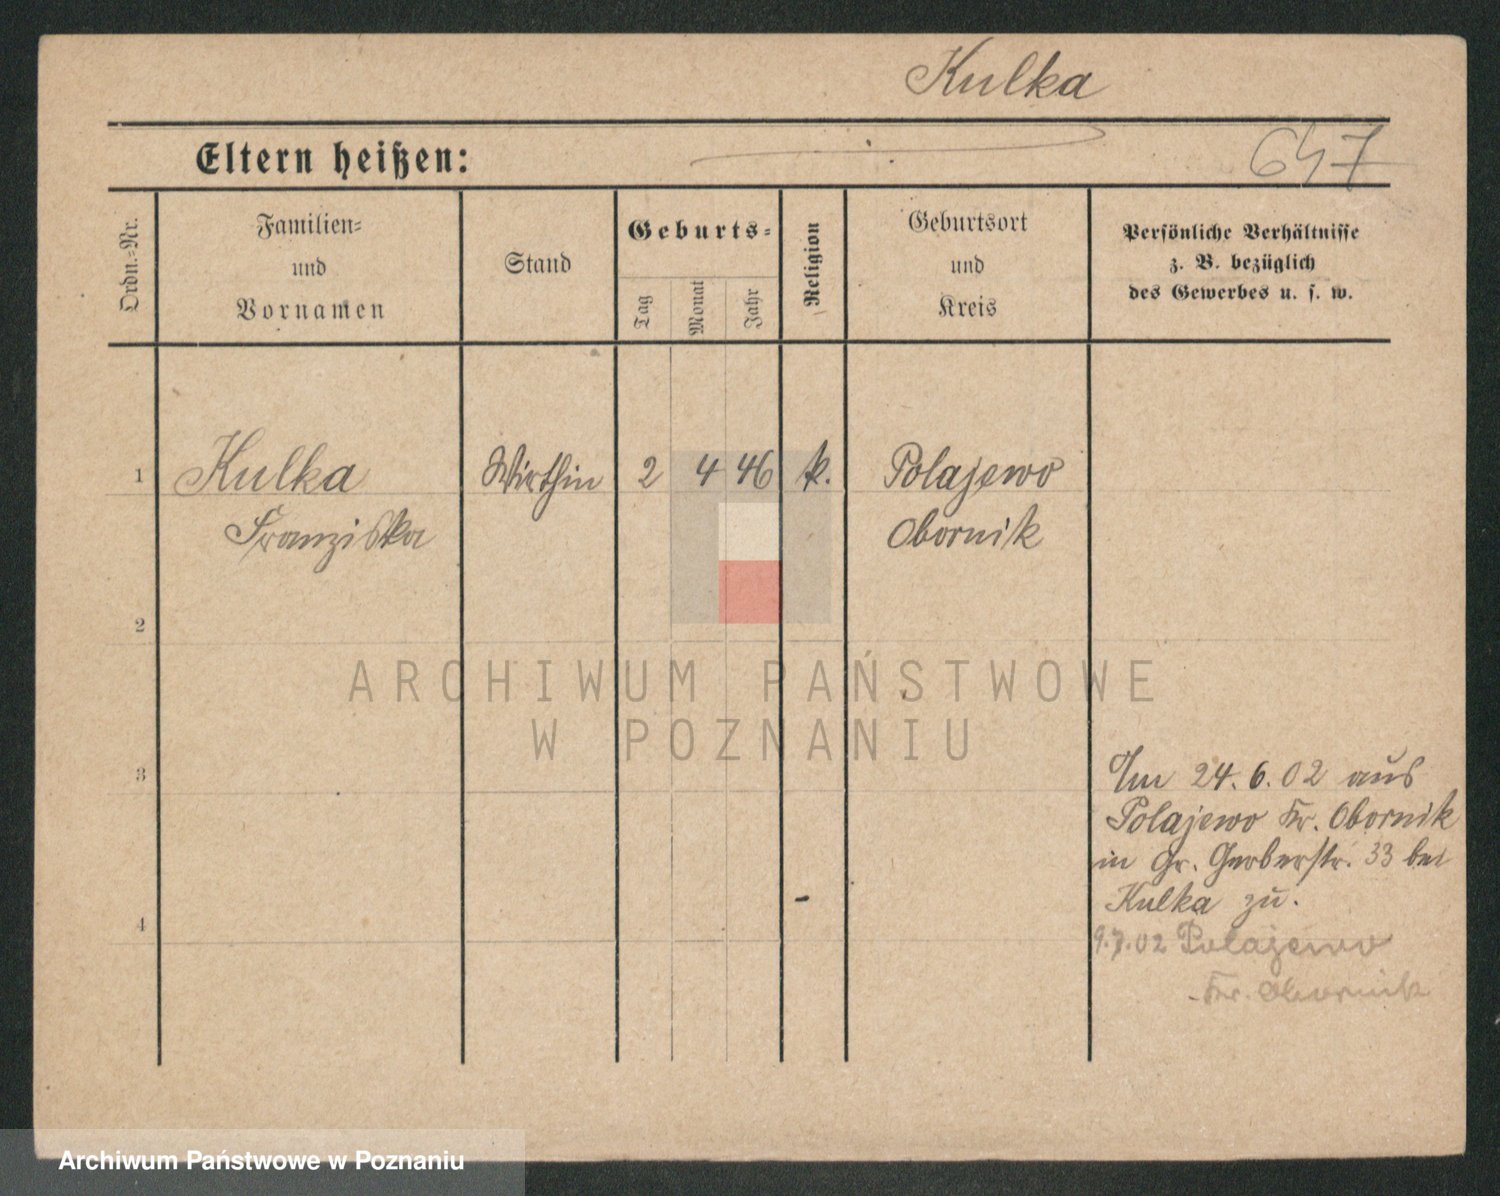 Kulka
647
Eltern heißen:
Ordn.-Nr.
Familien-
und
Vornamen
Stand
Geburts-
Tag
Monat
Jahr
Religion
Geburtsort
und
Kreis
Persönliche Verhältnisse
z. B. bezüglich
des Gewerbes u. s. w.
1 Kulka Wirthin 2 4 46 k. Polajewo
Franziska Obornik
2
ARCHIWUM PAŃSTWOWE
W POZNANIU
3
Am 24.6.02 aus
Polajewo Kr. Obornik
in Gr. Gerberstr. 33 bei
Kulka zu.
4
9.7.02 Polajewo
Kr. Obornik
Archiwum Państwowe w Poznaniu